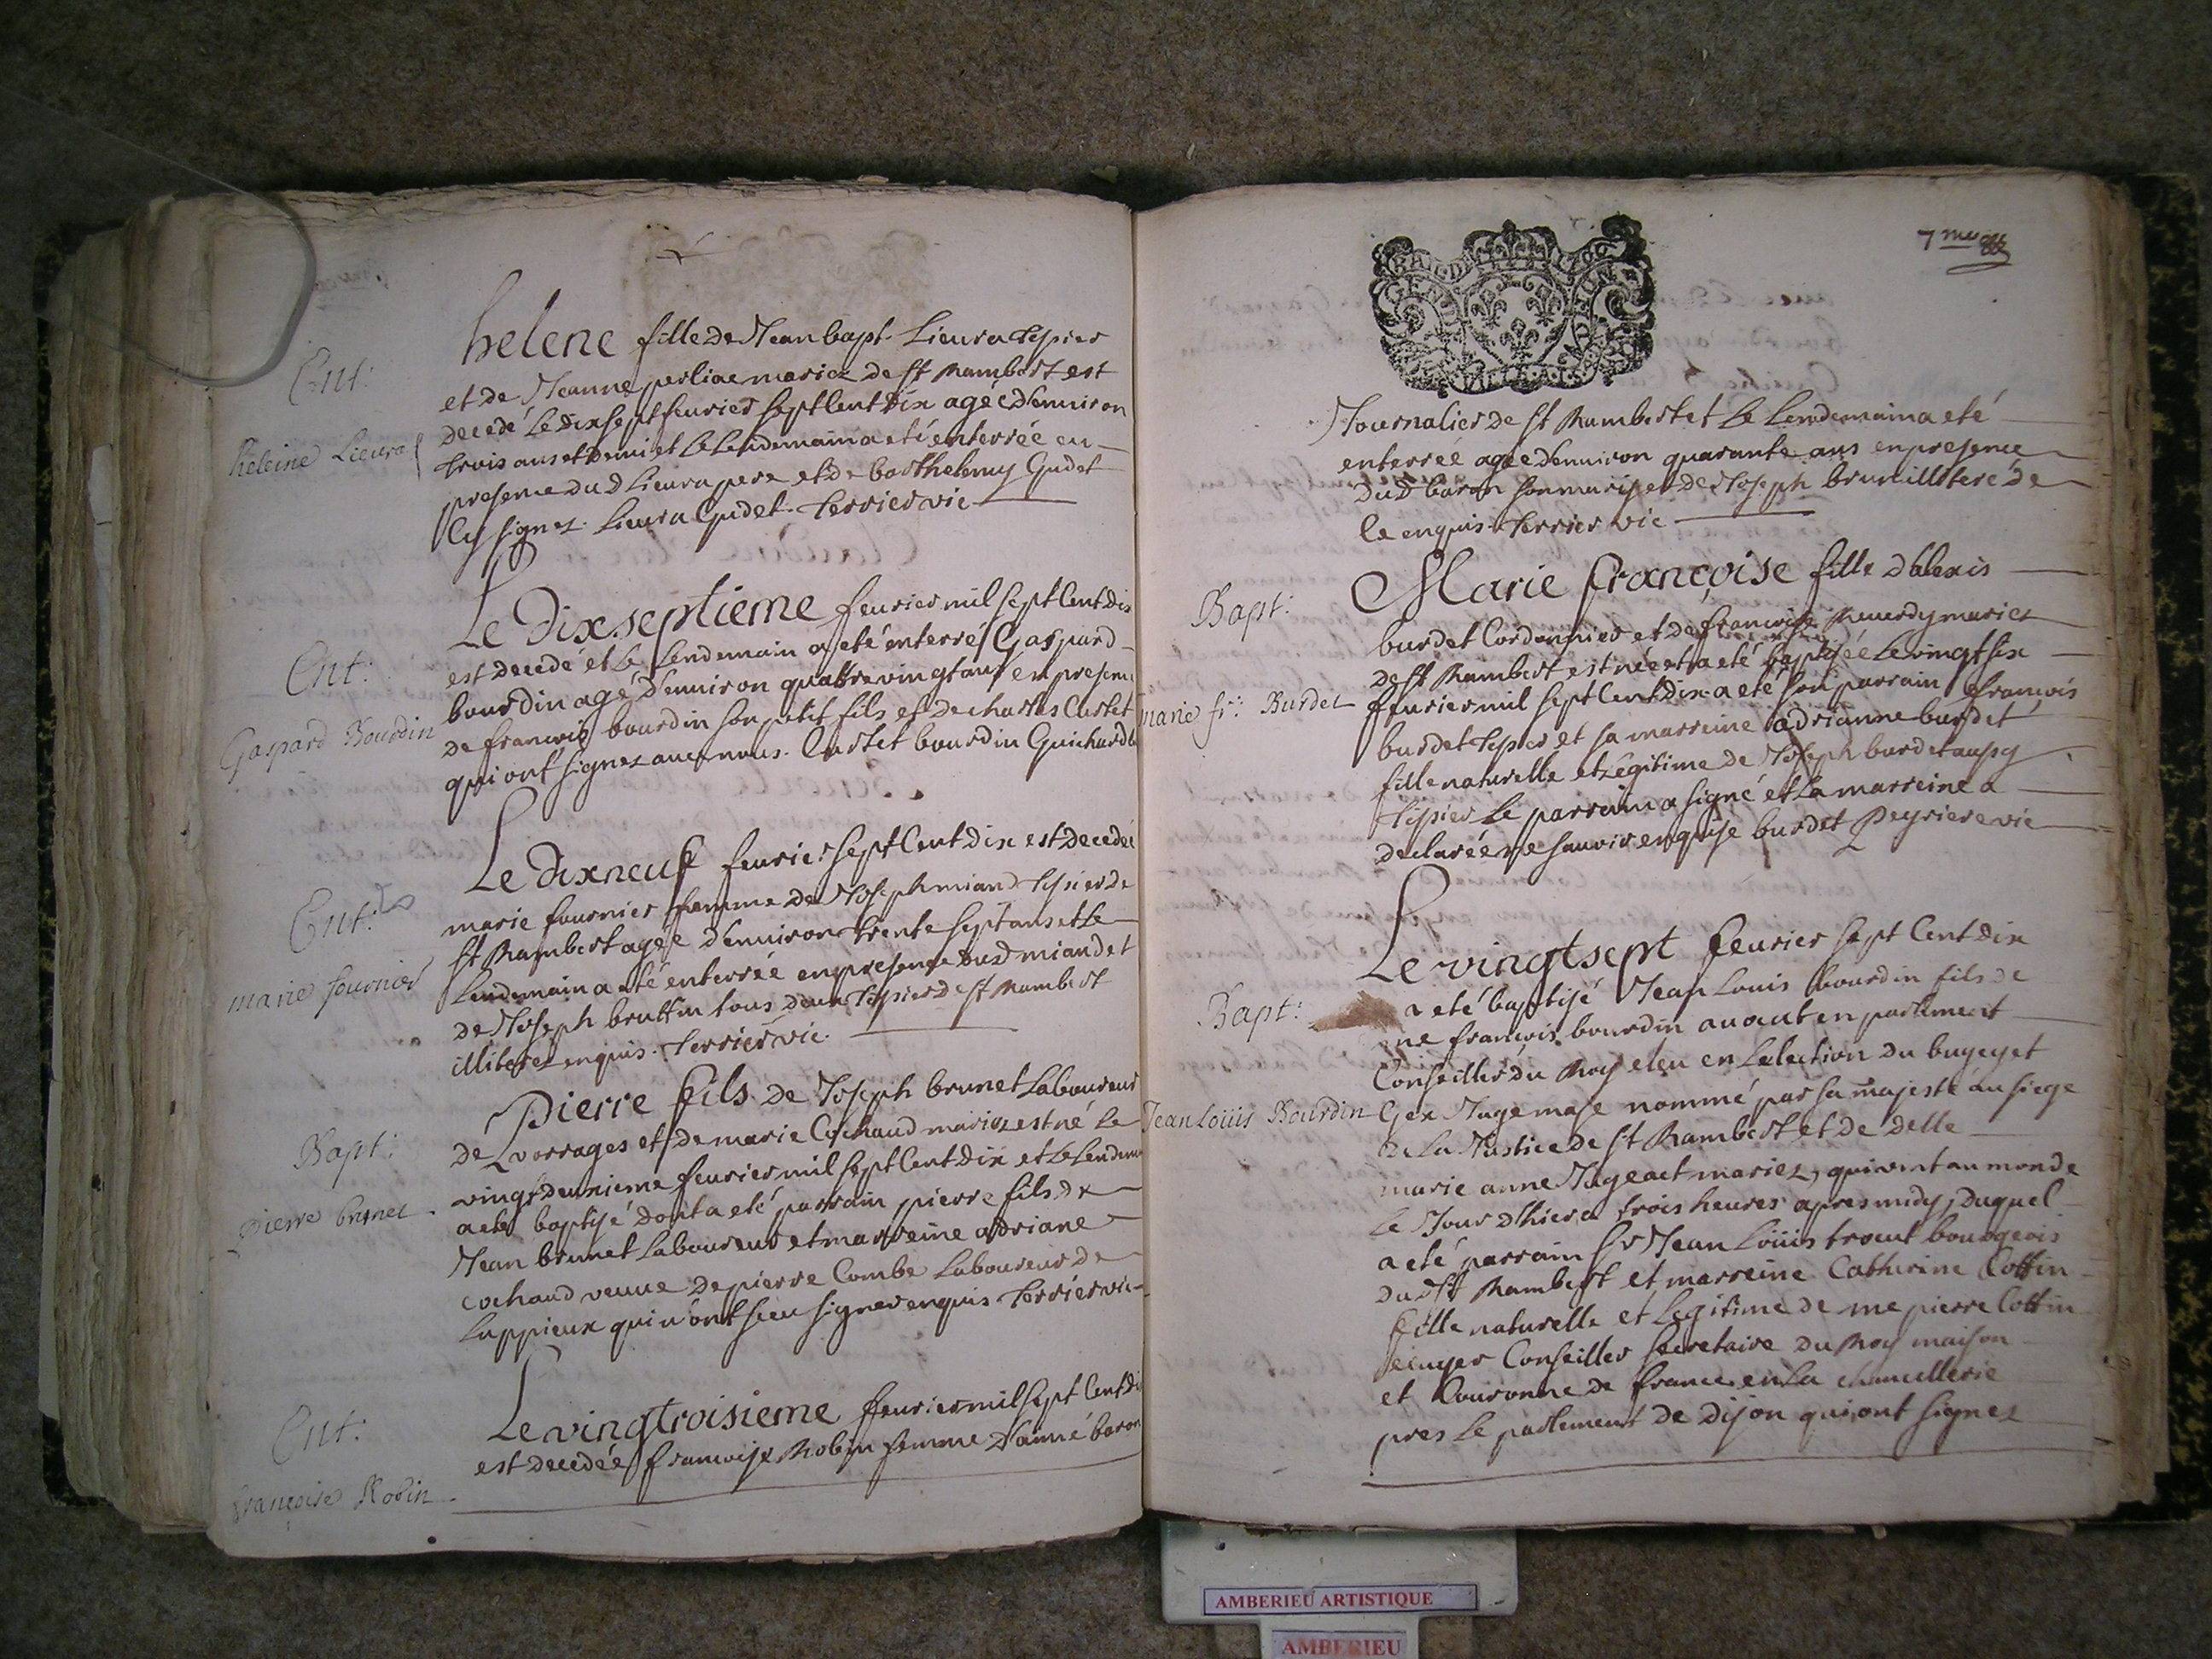 Ent:
heleine Lieura
helene fille de Jean bapt. Lieura tissier
et de Jeanne perliae mariez de st Rambert est
decedé le dixsept feurier sept Cent dix agée d'enuiron
trois ans et demi et le lendemain a eté enterrée en
presence dud Lieura pere et de barthelemy Gudet
Cy signez. Lieura Gudet. terrier vic
Ent:
Gaspard Bourdin
Le Dixseptieme feurier mil sept Cent dix
est decedé et le lendemain a eté enterré Gaspard
bourdin agé d'enuiron quattrevingt ans en presence
de francois bourdin son petit fils et de charles Custet
qui ont signez auec nous. Custet bourdin Guichard
Ent:
marie fournier
Le Dixneuf feurier sept Cent dix est decedée
marie fournier femme de Joseph miand tissier de
st Rambert agée d'enuiron trente sept ans et le
lendemain a eté enterrée en presence dud miand et
de Joseph bruttin tous deux tissier de st Rambert
illiterez enquis. terrier vic.
Bapt:
Pierre brunet
Pierre fils de Joseph brunet laboureur
de Vorrages et de marie Cochaud mariez est né le
vingt deuxieme feurier mil sept Cent dix et le lendem
a eté baptisé dont a eté parrain pierre fils de
Jean brunet laboureur et marreine adriane
cochaud veuue de pierre Combe laboureur de
Luppieux qui n'ont sceu signer enquis terrier vic
Ent:
françoise Robin
Le vingtroisieme feurier mil sept Cent di
est decedée francoise Robin femme d'aimé baron
7me
GEND
Journalier de st Rambert et le lendemain a eté
enterréé agée d'enuiron quarante ans en presence
dud baron son mari et de Joseph brun illiteré de
le enquis. terrier vic
Bapt:
marie fr: Burdet
Marie françoise fille d'alexis
burdet Cordonnier et de francoise Reuerdy mariez
de st Rambert est née et a eté baptiséé le vingt six
feurier mil sept Cent dix a eté son parrain francois
burdet tissier et sa marreine adrianne burdet
fille naturelle et legitime de Joseph burdet aussy
tissier le parrain a signé et la marreine a
declaréé ne sauoir enquise burdet Peysiere vic
Bapt:
Jean Loüis Bourdin
Le vingtsept feurier sept Cent dix
a eté baptisé Jean Louis bourdin fils de
me francois bourdin auocat en parlement
Conseiller du Roy eleu en l'election du bugey et
Gex Juge maje nommé par sa majesté au siege
de la Justice de st Rambert et de delle
marie anne Jugeact mariez, qui vint au monde
le Jour d'hier a trois heures apres midy, duquel
a eté parrain sr Jean Loüis trocut bourgeois
dud st Rambert et marreine Catherine Cottin
fille naturelle et legitime de me pierre Cottin
ecuyer Conseiller secretaire du Roy maison
et Couronne de france en la chancellerie
pres le parlement de dijon qui ont signez
AMBERIEU ARTISTIQUE
AMBERIEU